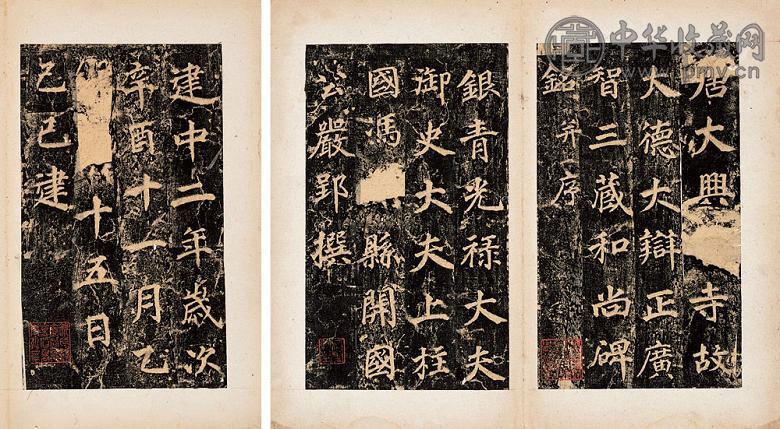 中华收藏网
唐大興 寺故
大德大辯正廣
智三藏和尚碑
銘并序
銀青光禄大夫
御史大夫上柱
國馮 縣開國
公嚴郢撰
建中二年歲次
辛酉十一月乙
十五日
己巳建